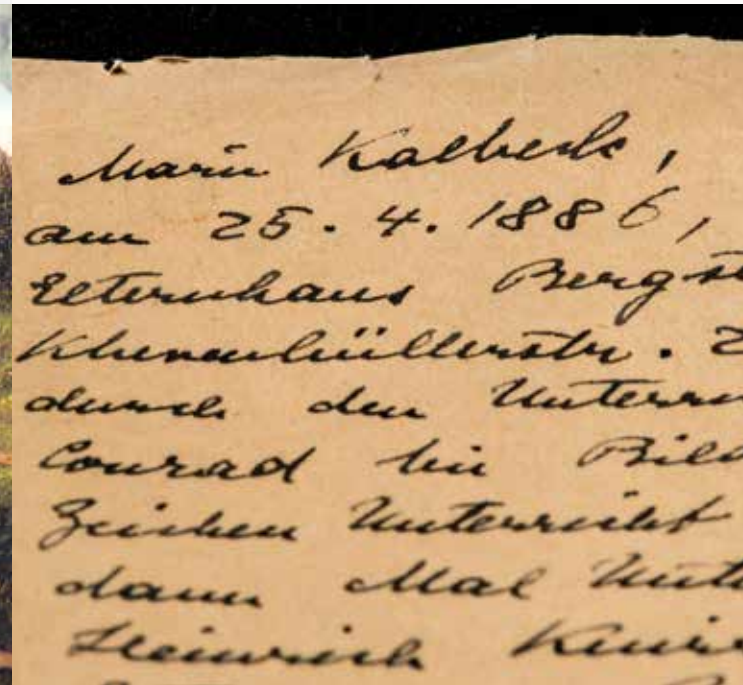 Marie Kalbeck,
am 25. 4. 1886,
Elternhaus Bergst
Khevenhüllerstr. 2
durch den Unterri
Conrad bei Bild
Zeichen Unterricht
dann Mal Unte
Heinrich Knir